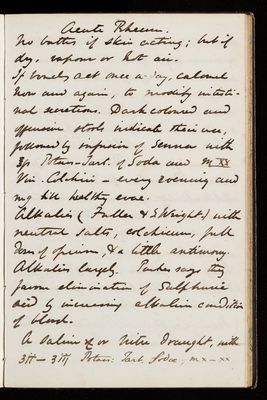 Acute Rheum.
No baths if skin acting; but if
dry, vapour or hot air.
If bowels act once a day, calomel
now and again, to modify intesti-
nal secretions. Dark coloured and
offensive stools indicate their use,
followed by infusion of Senna with
Potass-Tart. of Soda and m xx
Vin. Colchici - every evening and
mg till healthy evac.
Alkalies (Fuller & S. Wright) with
neutral salts, colchicum, full
doses of opium, & a little antimony.
Alkalies largely. Parkes says they
favour elimination of Sulphuric
acid by increasing alkaline condition
of blood.
A Saline or Nitre Draught, with
Potass: Tart. Sodae; m x - xx